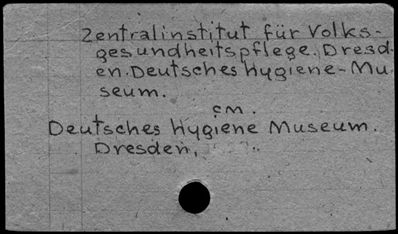 Zentralinstitut für Volks-
gesundheitspflege. Dresd-
en. Deutsches Hygiene-Mu-
seum.
cm.
Deutsches Hygiene Museum.
Dresden,